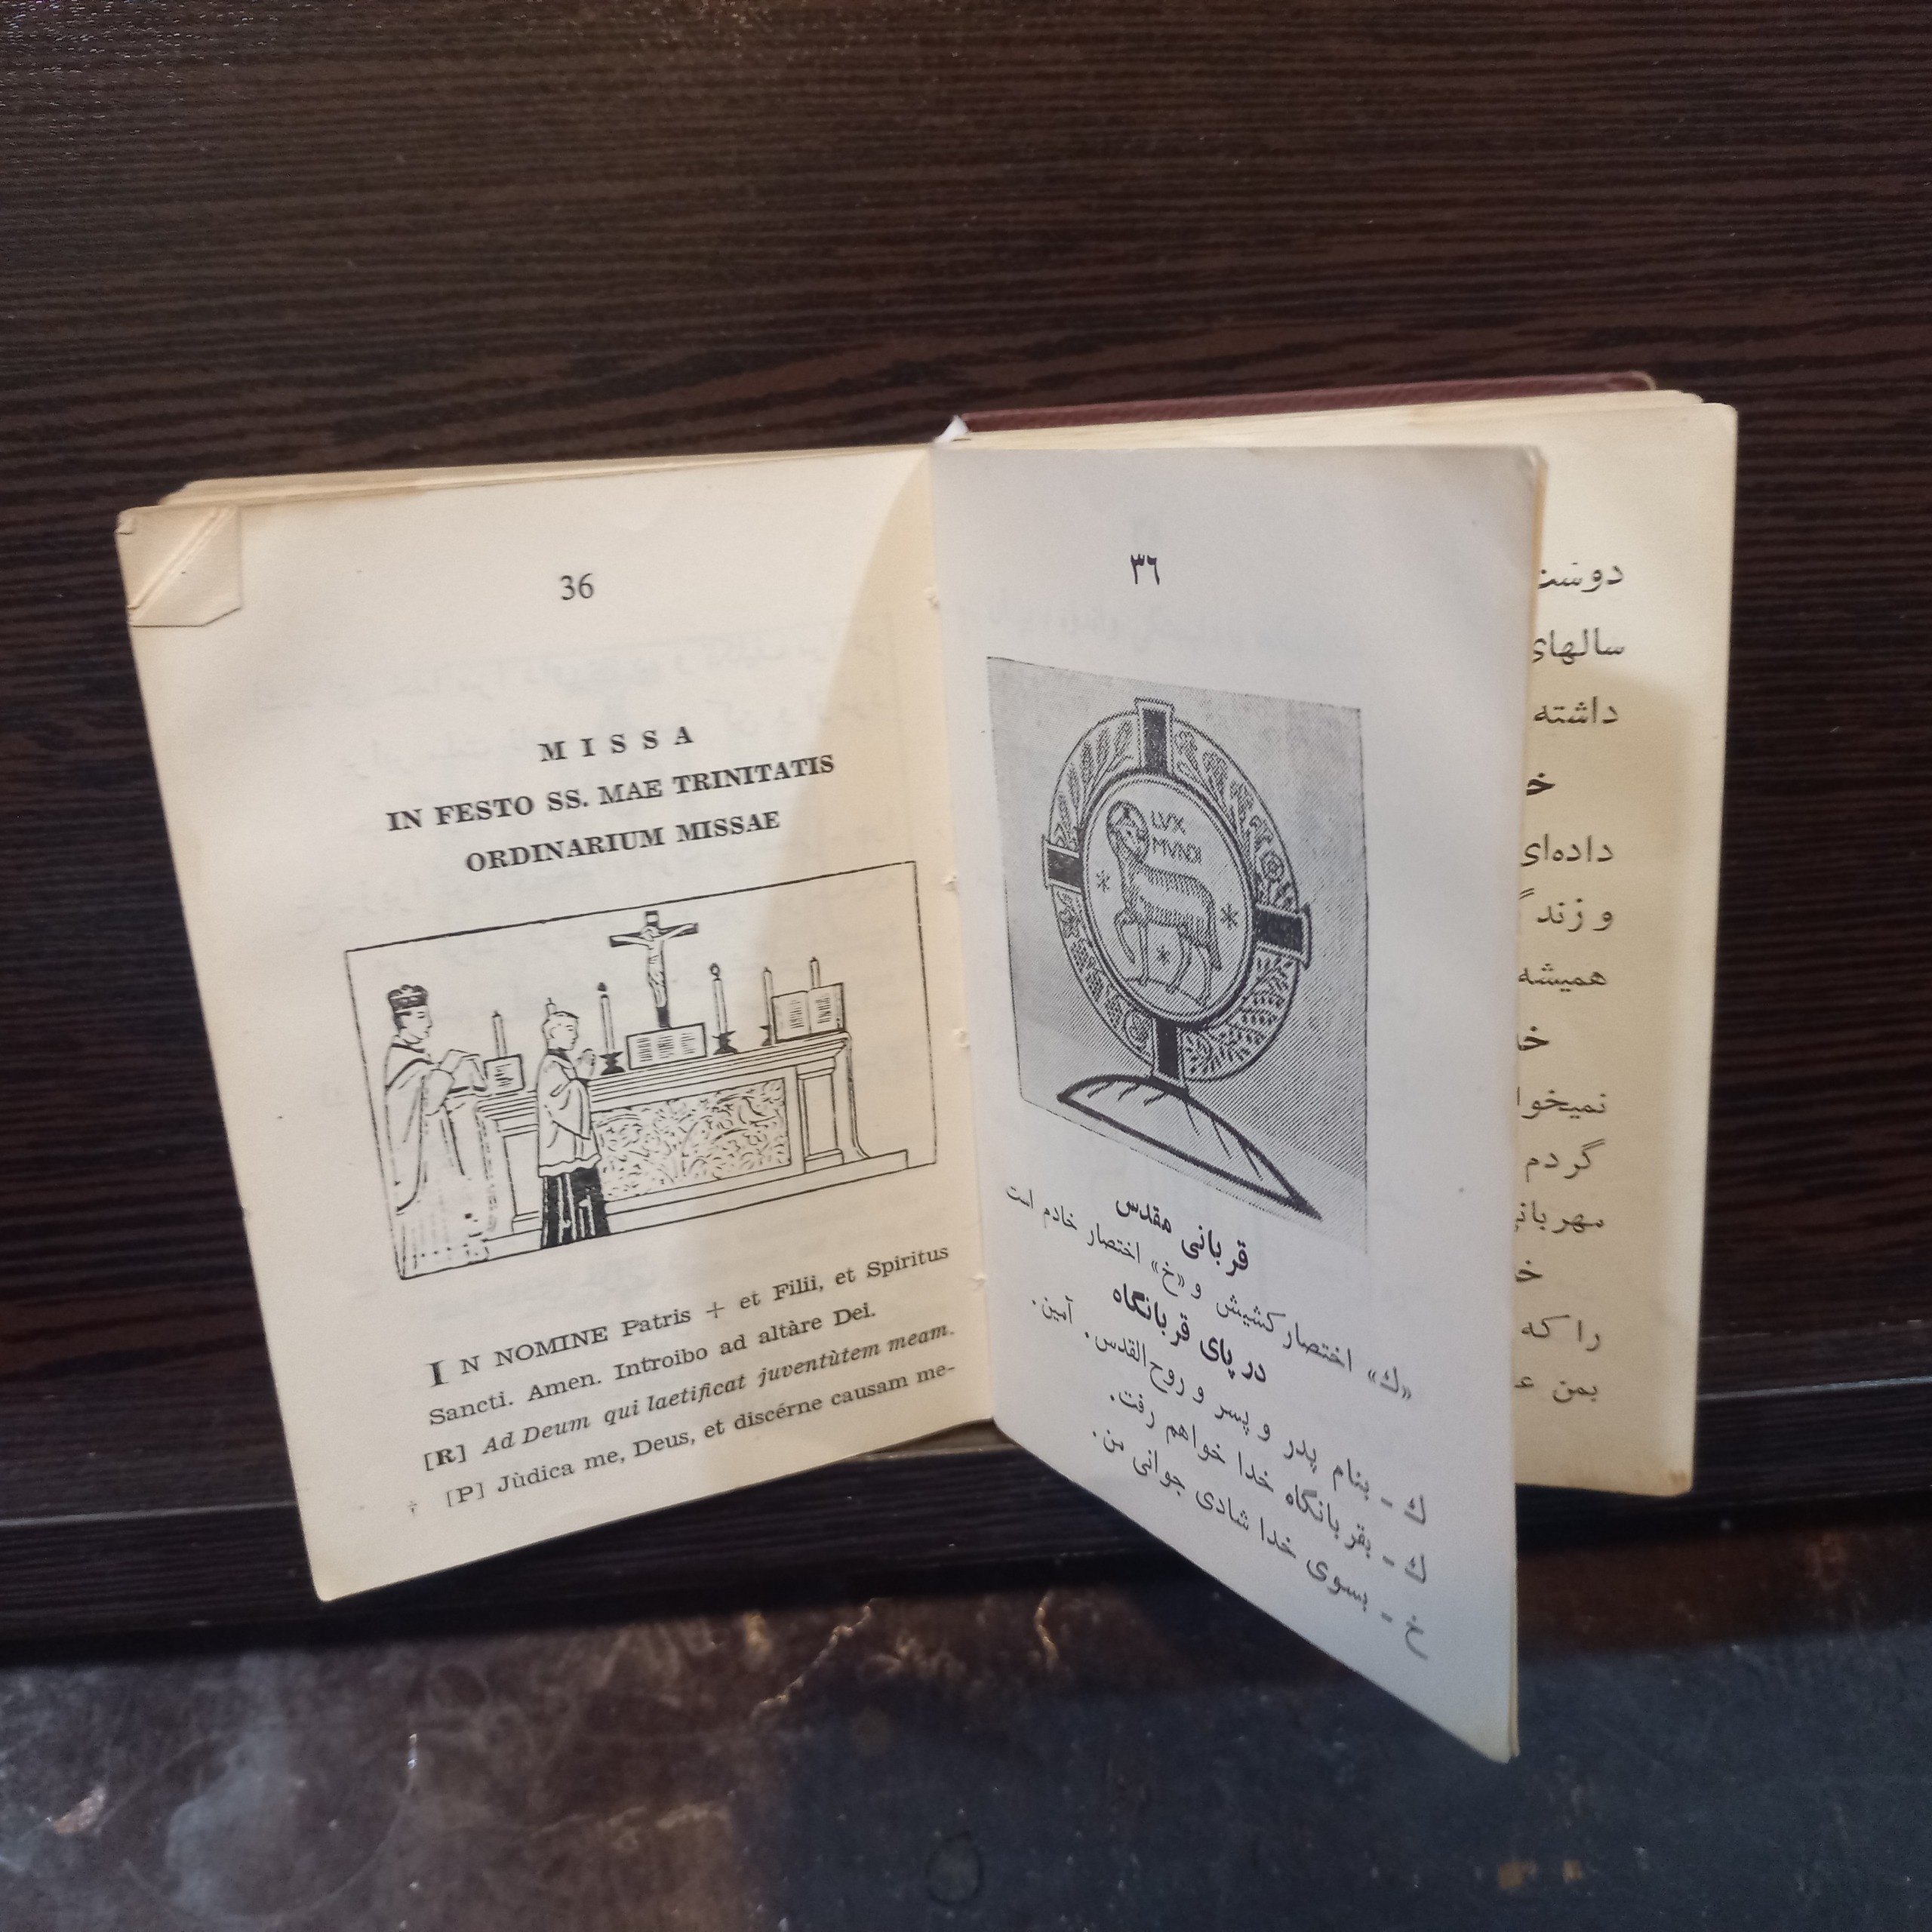 36
M I S S A
IN FESTO SS. MAE TRINITATIS
ORDINARIUM MISSAE
IN NOMINE Patris + et Filii, et Spiritus
Sancti. Amen. Introibo ad altàre Dei.
[R] Ad Deum qui laetificat juventùtem meam.
† [P] Jùdica me, Deus, et discérne causam me-
٣٦
LVX
MVNDI
قربانی مقدس
«ك» اختصار کشیش و «خ» اختصار خادم است
در پای قربانگاه
ك - بنام پدر و پسر و روح‌القدس. آمین.
ك - بقربانگاه خدا خواهم رفت.
خ - بسوی خدا شادی جوانی من.
سالهای
داشته
داده‌ای
و زند
همیشه
نمیخوا
گردم
را که
بمن